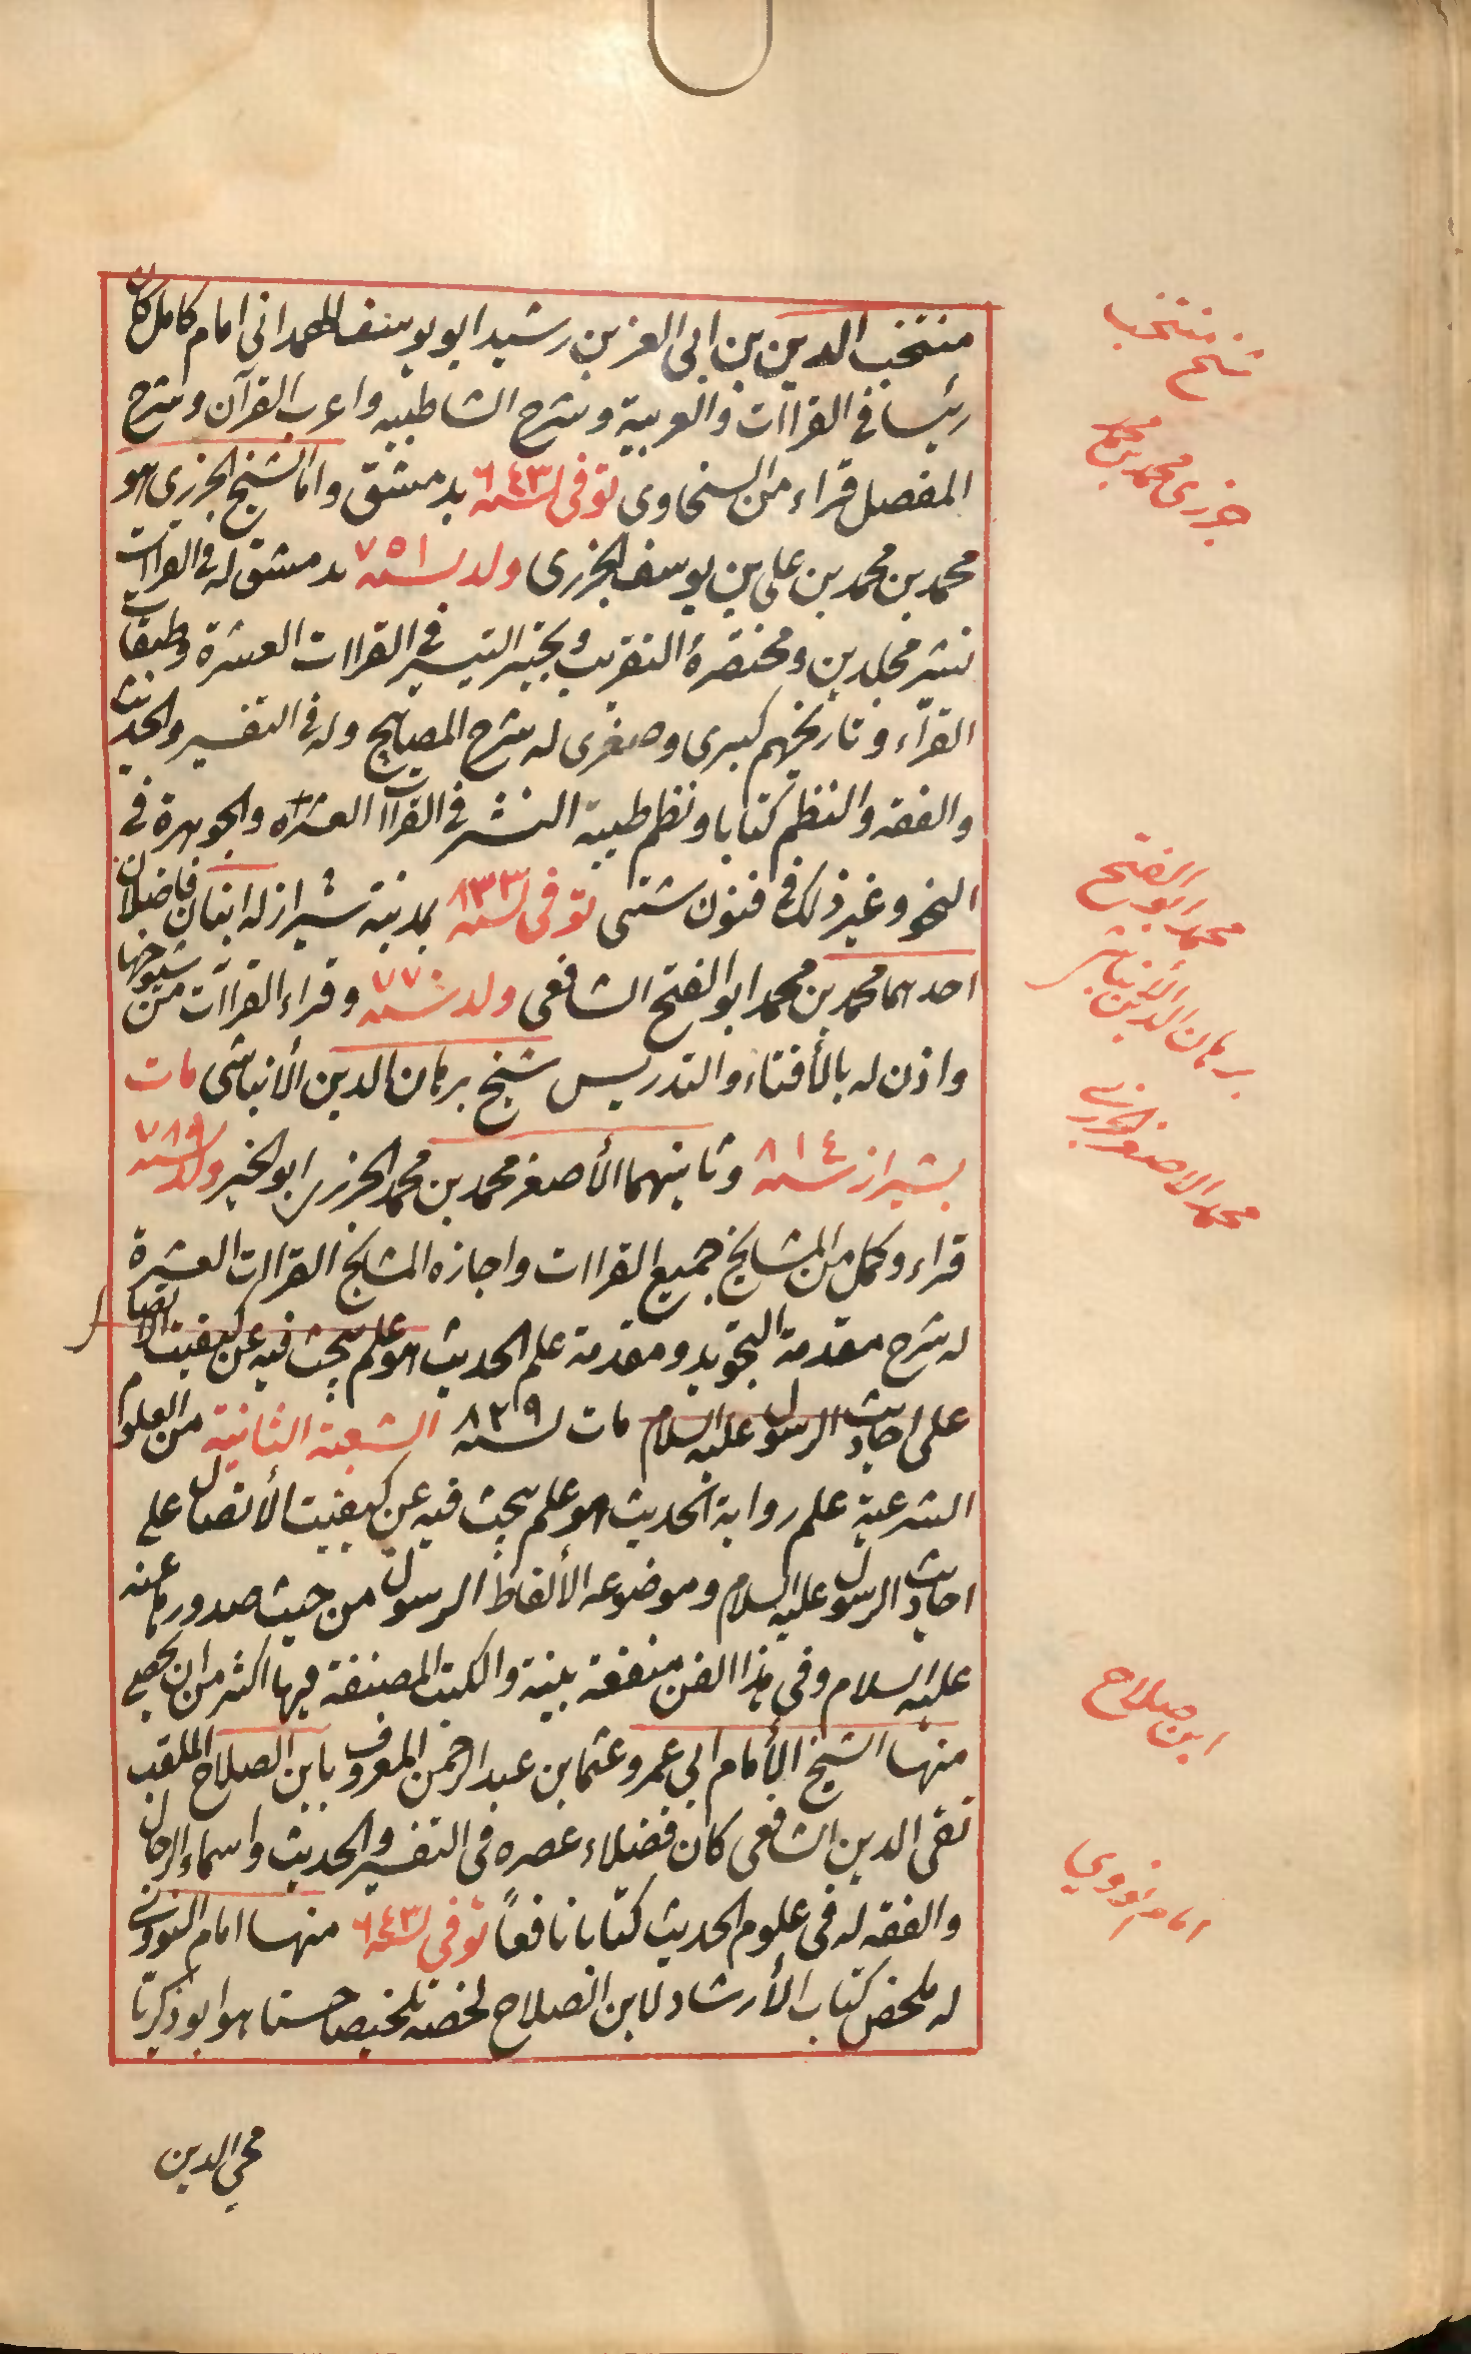 منتخب الدين بن ابى العز بن رشيد ابو يوسف الهمدانى امام كامل كان
رئيسا فى القراات والعربية وشرح الشاطبيه واعرب القرآن وشرح
المفصل قراء من السخاوى توفى سنه ٦٤٣ بدمشق واما الشيخ الجزرى هو
محمد بن محمد بن على بن يوسف الجزرى ولد سنه ٧٥١ بدمشق له فى القراات
نشر مجلدين ومختصرة التقريب وتحبير التيسير فى القراات العشرة وطبقات
القرآء وتاريخهم كبرى وصغرى له شرح المصابيح وله فى التفسير والحديث
والفقه والنظم كتابا ونظم طيبة النشر فى القراآت العشره والجوهرة فى
النحو وغير ذلك فى فنون شتى توفى سنه ٨٣٣ بمدينة شيراز له ابنان فاضلان
احدهما محمد بن محمد ابو الفتح الشافعى ولد سنه ٧٧٠ وقراء القراات من شيوخها
واذن له بالأفتاء والتدريس شيخ برهان الدين الأنباشى مات
بشيراز سنه ٨١٤ وثانيهما الأصغر محمد بن محمد الجزرى ابو الخير ولد سنه ٧٨٩
قراء وكمل من المشايخ جميع القراات واجازه المشايخ القراات العشرة
له شرح مقدمة التجويد ومقدمة علم الحديث هو علم يبحث فيه عن كيفيت الاتصال
على احاديث الرسول عليه السلام مات سنه ٨٢٩ الشعبة الثانية من العلوم
الشرعية علم رواية الحديث هو علم يبحث فيه عن كيفيت الأتصال على
احاديث الرسول عليه السلام وموضوعه الألفاظ الرسول من حيث صدورها عنه
عليه السلام وفى هذا الفن منفعة بينة والكتب المصنفة فيها اكثر من ان يحصى
منها الشيخ الأمام ابى عمرو عثما بن عبد الرحمن المعروف بابن الصلاح الملقب
تقى الدين الشافعى كان فضلاء عصره فى التفسير والحديث واسماء الرجال
والفقه له فى علوم الحديث كتابا نافعاً توفى سنه ٦٤٣ منها امام النووى
له ملخص كتاب الأرشاد لابن الصلاح لخصه تلخيصا حسنا هو ابو ذكريا
محي الدين
شيخ منتخب
جزرى محمد بن محمد
محمد ابو الفتح
برهان الدين الأنباشى
محمد الاصغر الجزرى
ابن صلاح
امام نووي